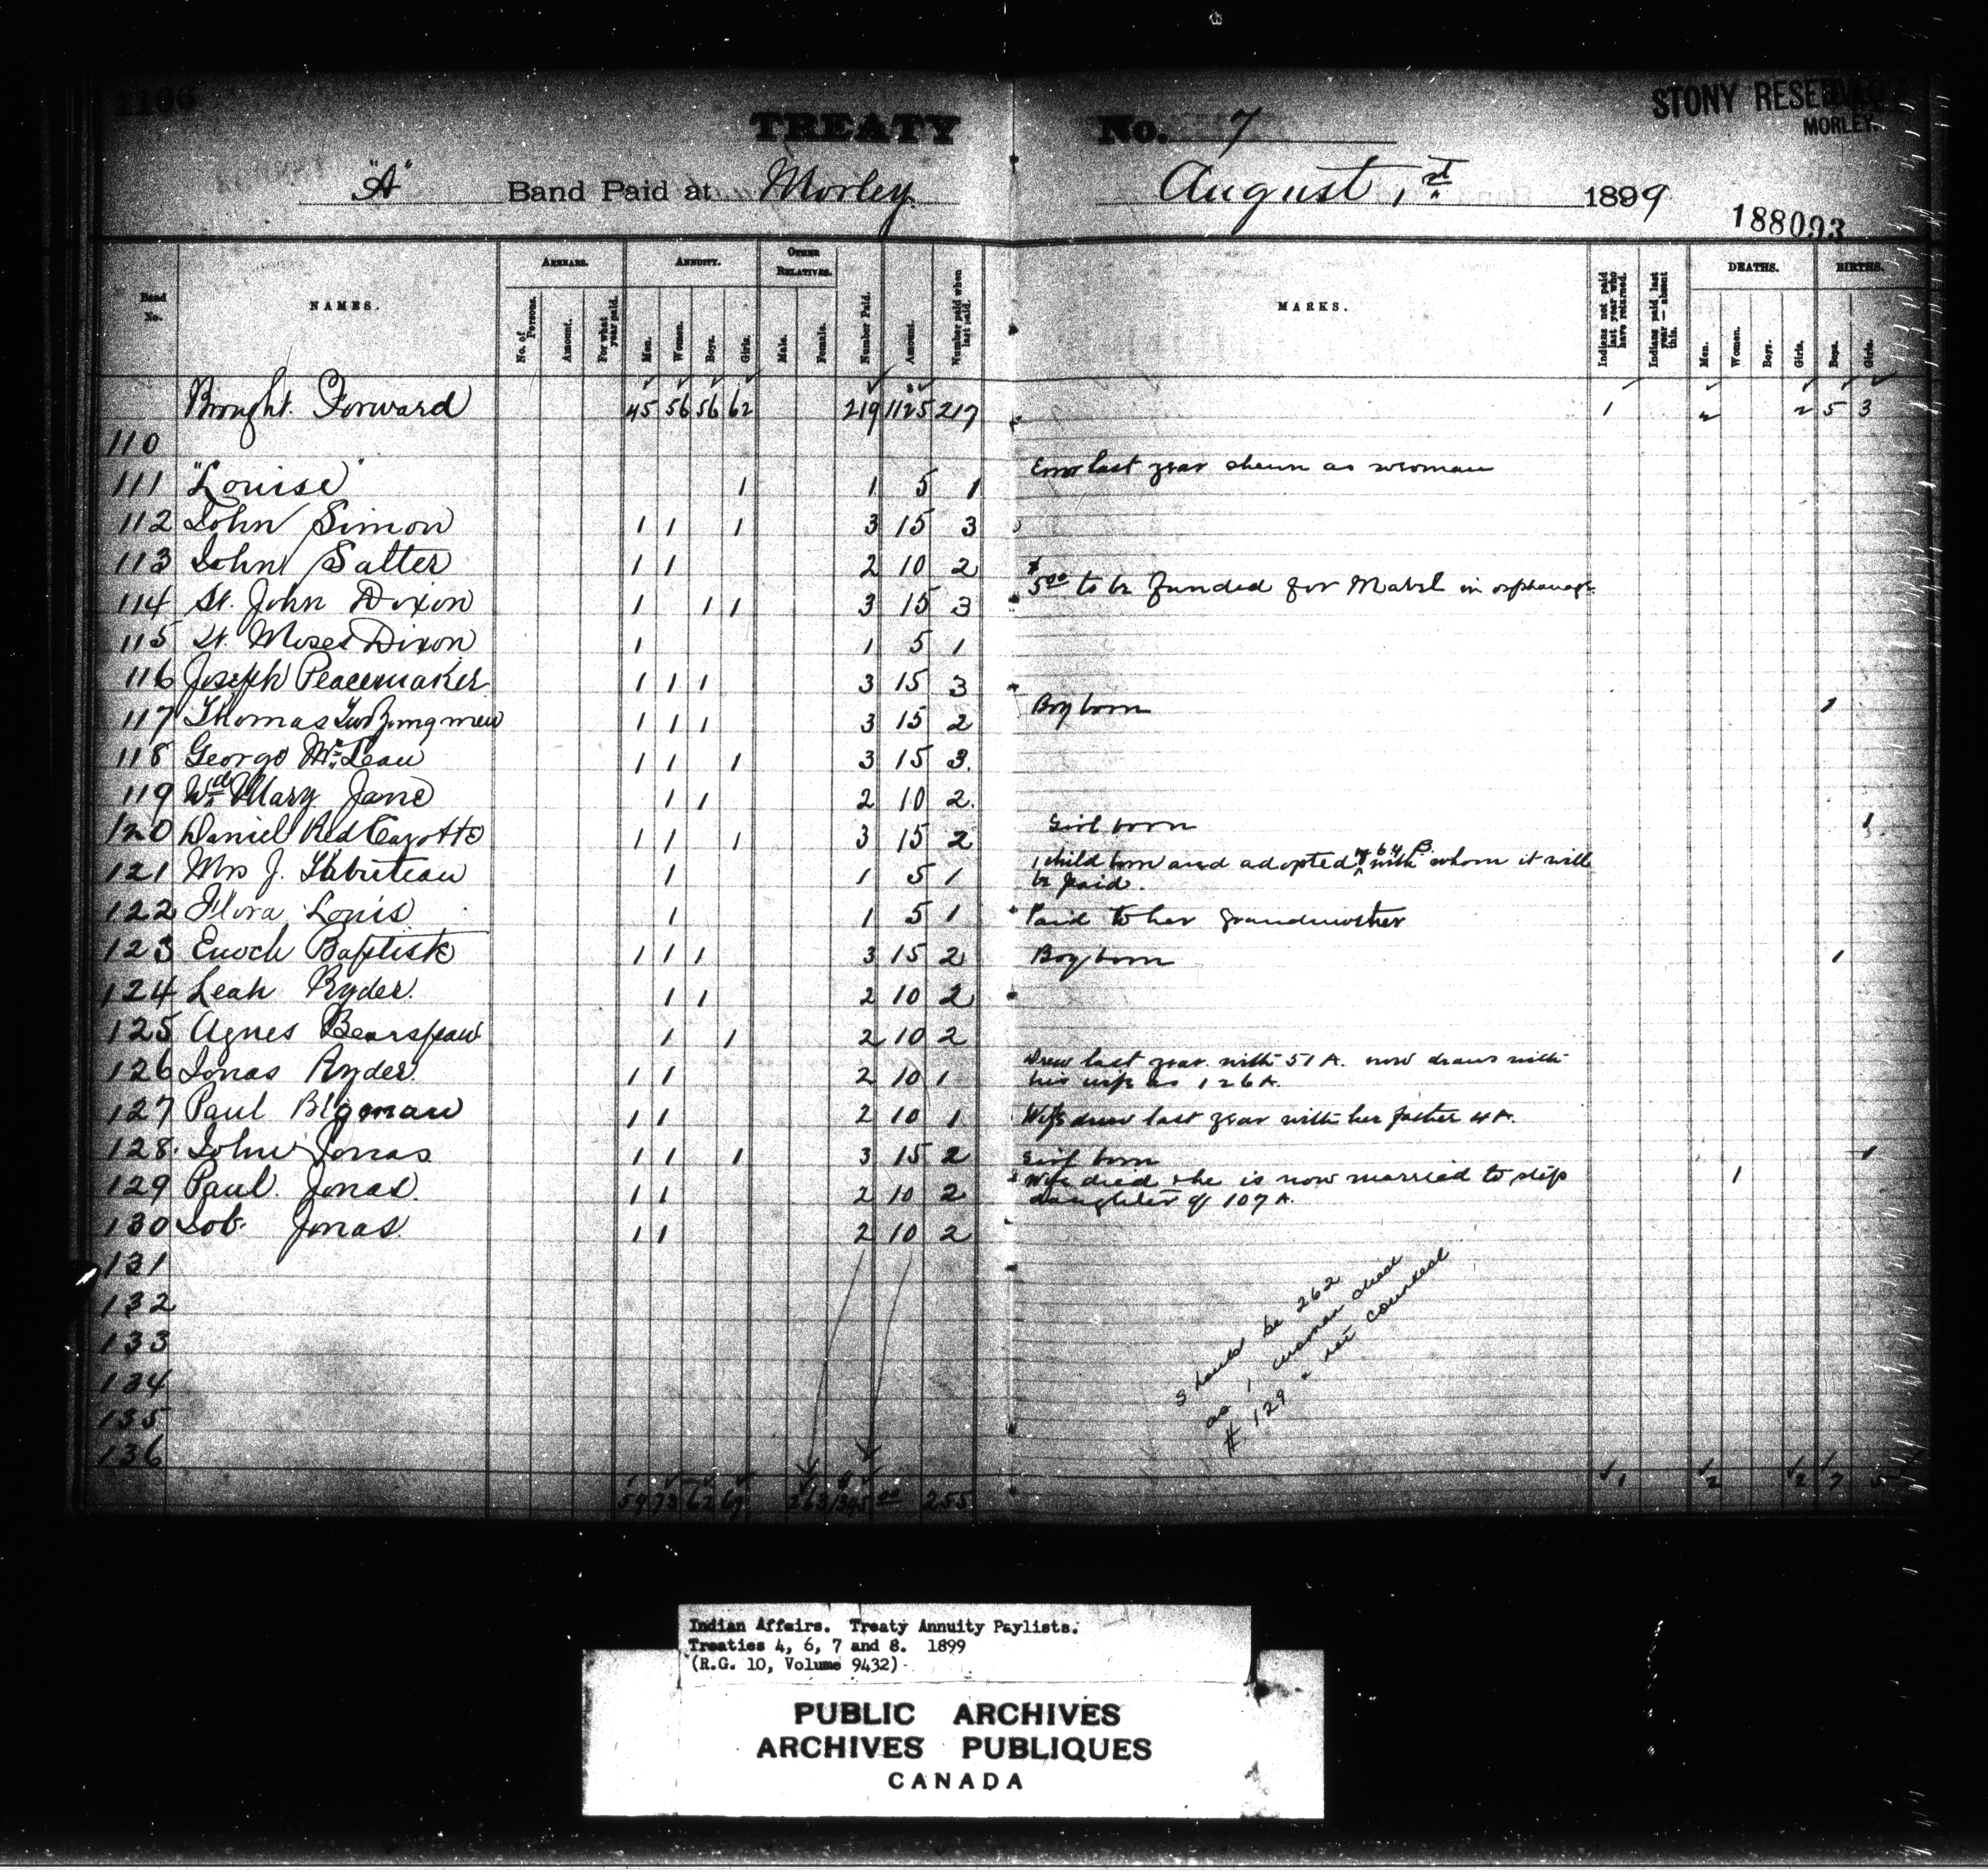 1106
STONY RESERVE
MORLEY.
TREATY No. 7
"A" Band Paid at Morley August 1st 1899
188093
Band No. NAMES. ARREARS. ANNUITY. OTHER RELATIVES. Number Paid. Amount. Number paid when last paid. MARKS. Indians not paid last year who have returned. Indians paid last year—absent this. DEATHS. BIRTHS.
No. of Persons. Amount. For what year paid. Men. Women. Boys. Girls. Male. Female. Men. Women. Boys. Girls. Boys. Girls.
Brought Forward 45 56 56 62 219 1125 217 1 2 2 5 3
110
111 "Louise" 1 1 5 1 Error last year shewn as woman
112 John Simon 1 1 1 3 15 3
113 John Salter 1 1 2 10 2
114 St. John Dixon 1 1 1 3 15 3 $5.00 to be funded for Mabel in orphanage
115 St. Moses Dixon 1 1 5 1
116 Joseph Peacemaker 1 1 1 3 15 3
117 Thomas Two Youngmen 1 1 1 3 15 2 Boy born 1
118 George McLean 1 1 1 3 15 3.
119 Wd Mary Jane 1 1 2 10 2.
120 Daniel Red 1 1 1 3 15 2 Girl born 1
121 Mrs J. 1 1 5 1 1 child born and adopted by 64 B. with whom it will
be paid.
122 Flora Louis 1 1 5 1 Paid to her grandmother
123 Enoch Baptiste 1 1 1 3 15 2 Boy born 1
124 Leah Ryder. 1 1 2 10 2
125 Agnes Bearspaw 1 1 2 10 2
126 Jonas Ryder. 1 1 2 10 1 Drew last year with 51 A. now draws with
his wife as 126 A.
127 Paul Bigman 1 1 2 10 1 Wife drew last year with her father 4 A.
128. John Jonas 1 1 1 3 15 2 Girl born 1
129 Paul. Jonas. 1 1 2 10 2 Wife died & he is now married to step 1
daughter of 107 A.
130 Job Jonas. 1 1 2 10 2
131
132
133
134
135
136
should be 262
as 1 woman died
# 129 & not counted
59 73 62 69 263 1345.00 255 1 2 2 7 5
Indian Affairs. Treaty Annuity Paylists.
Treaties 4, 6, 7 and 8. 1899
(R.G. 10, Volume 9432)
PUBLIC ARCHIVES
ARCHIVES PUBLIQUES
CANADA